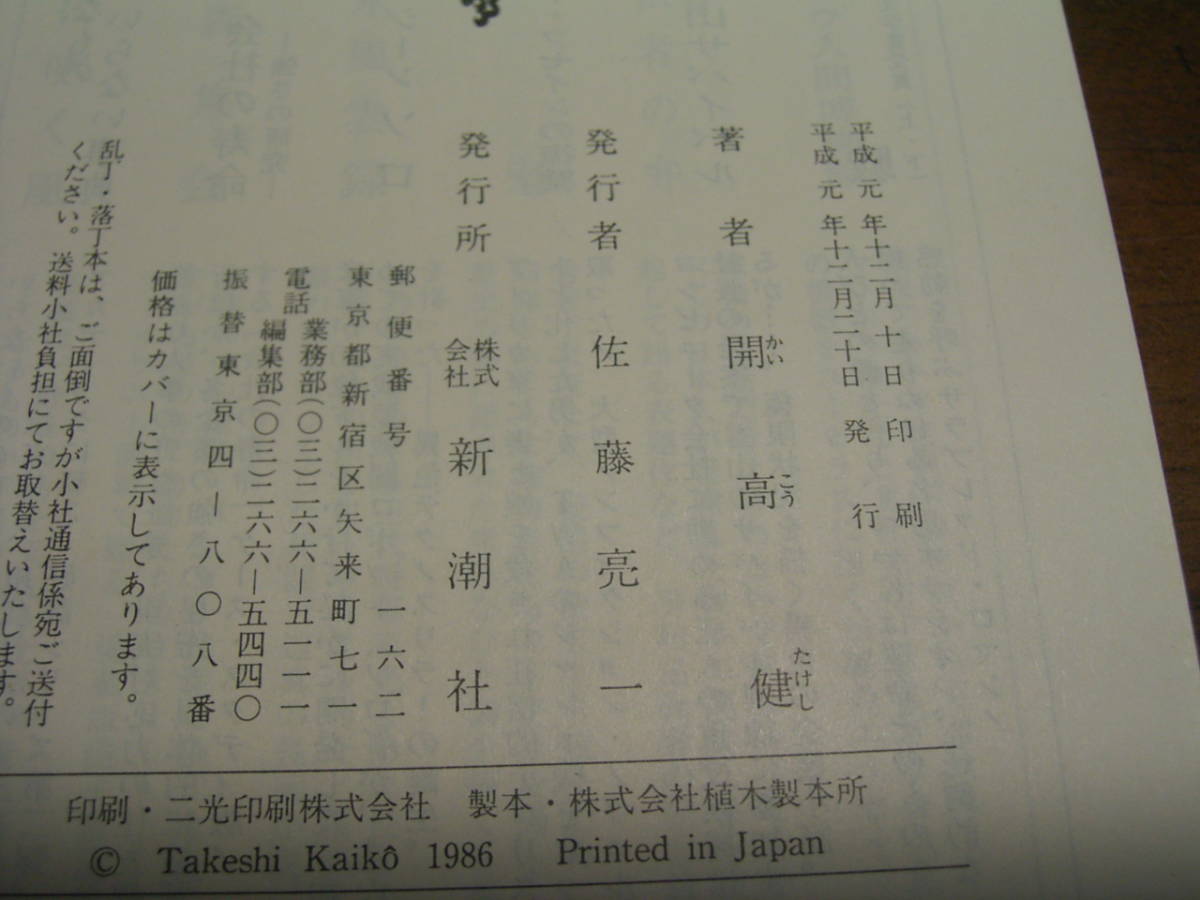 平成 元 年十二月 十 日 印 刷
平成 元 年十二月二十日 発 行
著者 開高健
かい こう たけし
発行者 佐藤亮一
発行所 株式会社 新潮社
郵便番号 一六二
東京都新宿区矢来町七一
電話 業務部(〇三)二六六―五一一一
編集部(〇三)二六六―五四四〇
振替東京四―八〇八番
価格はカバーに表示してあります。
乱丁・落丁本は、ご面倒ですが小社通信係宛ご送付
ください。送料小社負担にてお取替えいたします。
印刷・二光印刷株式会社 製本・株式会社植木製本所
© Takeshi Kaikô 1986 Printed in Japan